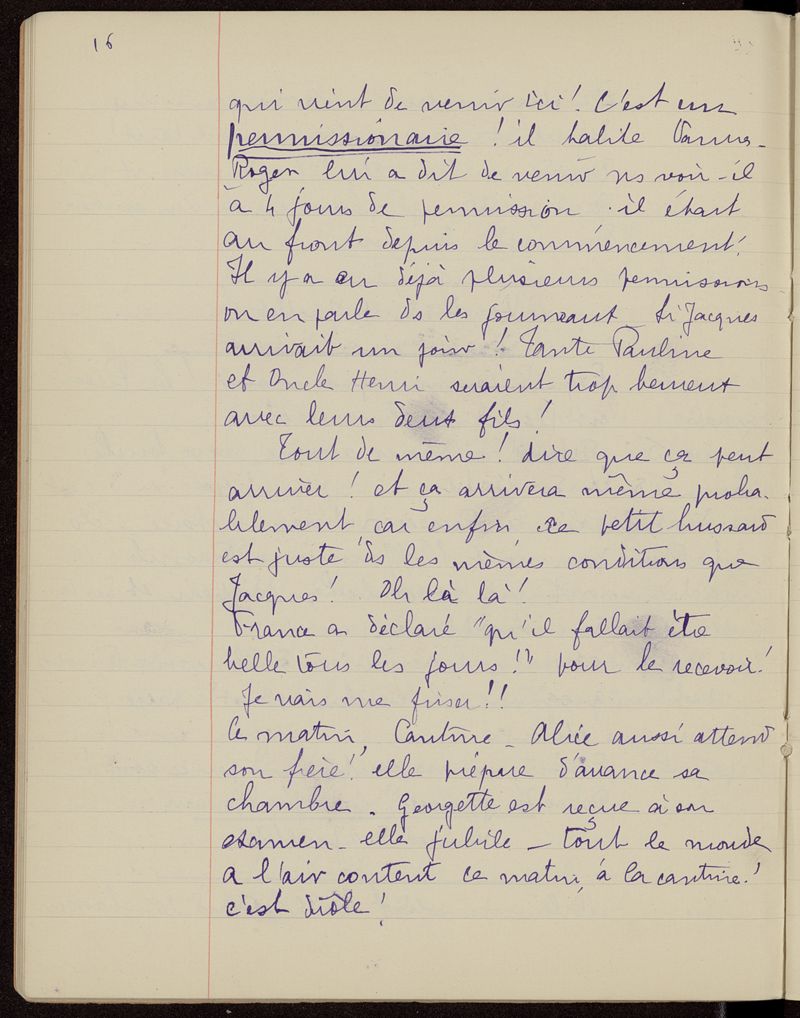 16
qui vient de venir ici! C'est un
permissionaire ! il habite Vannes -
Roger lui a dit de venir ns voir - il
à 4 jours de permission . il était
au front depuis le commencement!
Il y a eu déjà plusieurs permissions
on en parle ds les journeaux Si Jacques
arrivait un jour ! Tante Pauline
et Oncle Henri seraient trop heureux
avec leurs deux fils !
Tout de même ! dire que ça peut
arriver ! et ça arrivera même proba-
blement car enfin ce petit hussard
est juste ds les mêmes conditions que
Jacques ! Oh là là !
France a déclaré "qu'il fallait être
belle tous les jours !" pour le recevoir !
Je vais me friser !!
Ce matin, Cantine - Alice aussi attend
son frère ! elle prépare d'avance sa
chambre . Georgette est reçue à son
examen - elle jubile - tout le monde
a l'air content ce matin, à la cantine !
c'est drôle !